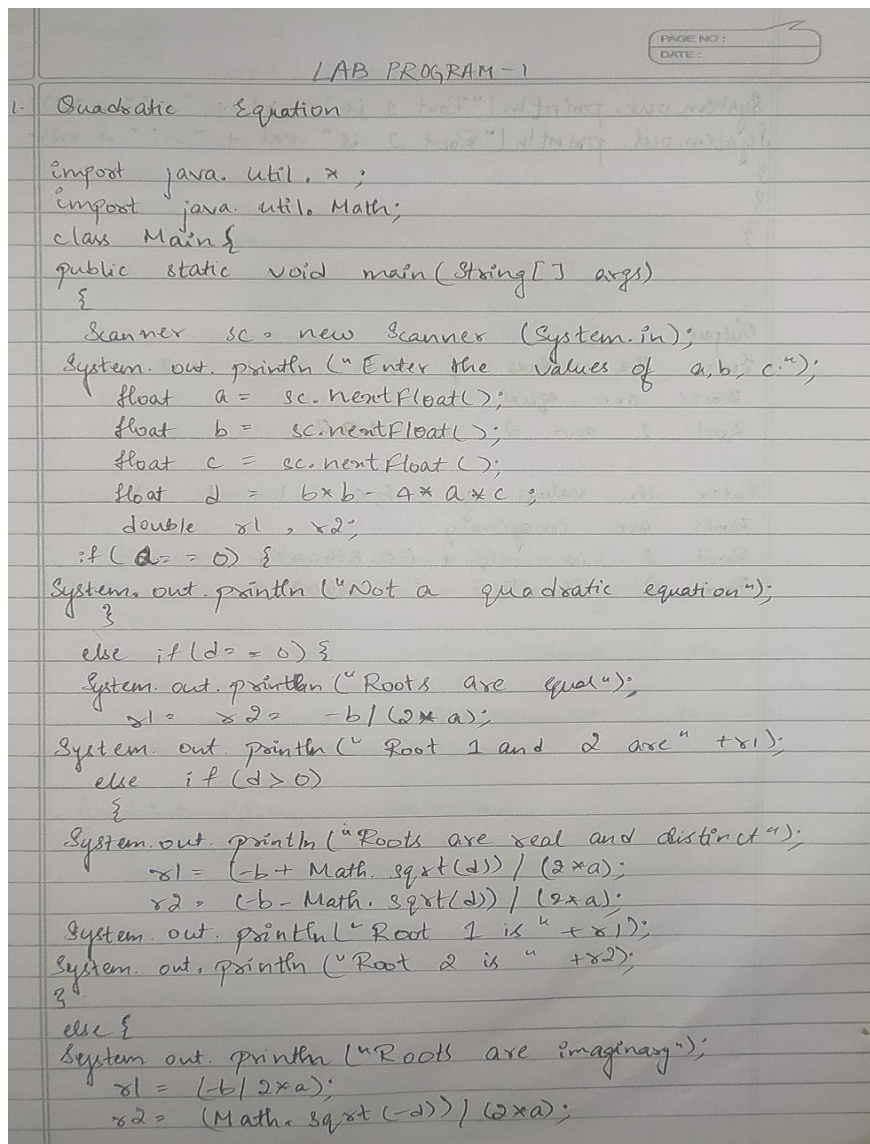 PAGE NO:
DATE:
LAB PROGRAM - 1
1. Quadratic Equation
import java. util. *;
import java. util. Math;
class Main {
public static void main (String [] args)
{
Scanner sc = new Scanner (System.in);
System. out. println ("Enter the values of a, b, c.");
float a = sc. nextFloat();
float b = sc. nextFloat();
float c = sc. nextFloat ();
float d = b*b - 4* a*c ;
double r1 , r2;
if ( a == 0) {
System. out. println ("Not a quadratic equation");
}
else if (d == 0) {
System. out. println ("Roots are equal");
r1 = r2 = -b / (2* a);
System. out. println (" Root 1 and 2 are" +r1);
else if (d > 0)
{
System. out. println ("Roots are real and distinct");
r1 = (-b + Math. sqrt(d)) / (2*a);
r2 = (-b - Math. sqrt(d)) / (2*a);
System. out. println (" Root 1 is " + r1);
System. out. println ("Root 2 is " +r2);
}
else {
System out. println ("Roots are imaginary");
r1 = (-b/ 2*a);
r2 = (Math. sqrt (-d)) / (2*a);